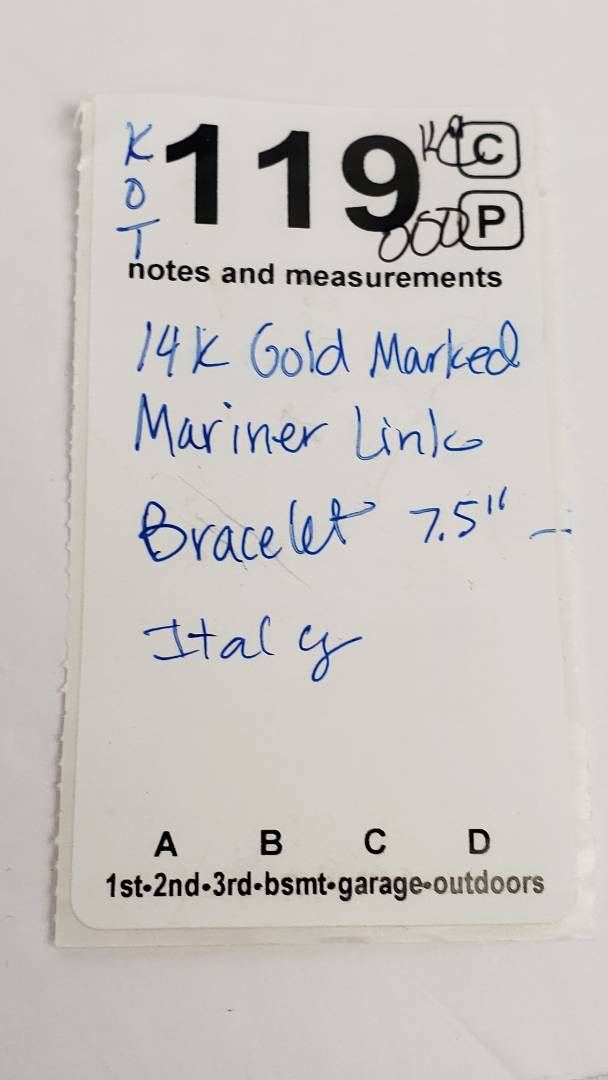 K
O
T
119
C
P
notes and measurements
14K Gold Marked
Mariner Link
Bracelet 7.5" -
Italy
A B C D
1st•2nd•3rd•bsmt•garage•outdoors